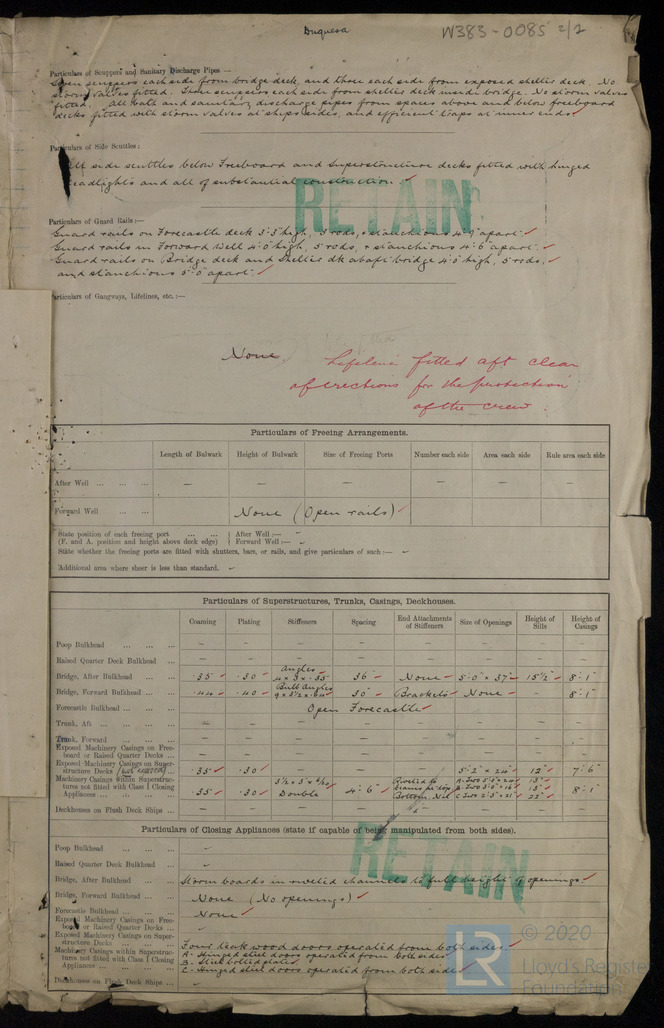 Duquesa
W383-0085 2/2
Particulars of Scuppers and Sanitary Discharge Pipes —
Seven scuppers each side from bridge deck, and three each side from exposed shelter deck. No
storm valves fitted. Three scuppers each side from shelter deck inside bridge. No storm valves
fitted. All bath and sanitary discharge pipes from spaces above and below freeboard
decks fitted with storm valves at ships sides, and efficient traps at inner ends.
Particulars of Side Scuttles:
All side scuttles below Freeboard and Superstructure decks fitted with hinged
deadlights and all of substantial construction.
RETAIN
Particulars of Guard Rails:—
Guard rails on Forecastle deck 3'.3" high, 3 rods, + stanchions 4'.9" apart.
Guard rails in Forward Well 4'.0" high, 5 rods, + stanchions 4'.6" apart.
Guard rails on Bridge deck and Shelter dk abaft bridge 4'.0" high, 5 rods,
and stanchions 5'.0" apart.
Particulars of Gangways, Lifelines, etc.:—
None.
Lifeline fitted aft clear
of erections for the protection
of the crew.
Particulars of Freeing Arrangements.
Length of Bulwark Height of Bulwark Size of Freeing Ports Number each side Area each side Rule area each side
After Well ... ... ... — — — — — —
Forward Well ... ... None (Open rails)
State position of each freeing port ... ... After Well :—
(F. and A. position and height above deck edge) Forward Well :—
State whether the freeing ports are fitted with shutters, bars, or rails, and give particulars of such :—
Additional area where sheer is less than standard.
Particulars of Superstructures, Trunks, Casings, Deckhouses.
Coaming Plating Stiffeners Spacing End Attachments of Stiffeners Size of Openings Height of Sills Height of Casings
Poop Bulkhead ... ... ... — — — — — — — —
Raised Quarter Deck Bulkhead ... — — — — — — — —
Bridge, After Bulkhead ... ... .35 .30 Angles 4 x 3 x .35 36" None 5'.0" x 37" 15½" 8'.1"
Bridge, Forward Bulkhead ... ... .44 .40 Bulb Angles 30" Brackets None — 8'.1"
Forecastle Bulkhead ... ... Open Forecastle
Trunk, Aft ... ... ... — — — — — — — —
Trunk, Forward ... ... ... — — — — — — — —
Exposed Machinery Casings on Free-
board or Raised Quarter Decks ... — — — — — — — —
Exposed Machinery Casings on Super-
structure Decks ... .35 .30 5'.2" x 24" 12" 7'.6"
Machinery Casings within Superstruc-
tures not fitted with Class I Closing
Appliances ... ... ... .35 .30 Double 4'.6" Bottom. Nil 8'.1"
Deckhouses on Flush Deck Ships ... — — — — — — —
Particulars of Closing Appliances (state if capable of being manipulated from both sides).
RETAIN
Poop Bulkhead ... ... ...
Raised Quarter Deck Bulkhead ...
Bridge, After Bulkhead ... ... Storm boards in riveted channels to full height of openings.
Bridge, Forward Bulkhead ... None (No openings)
Forecastle Bulkhead ... ... None
Exposed Machinery Casings on Free-
board or Raised Quarter Decks ...
Exposed Machinery Casings on Super-
structure Decks ... ... Four teak wood doors operated from both sides
Machinery Casings within Superstruc-
tures not fitted with Class I Closing
Appliances ... ... ... A. Hinged steel doors operated from both sides
B. Steel bolted plates
C. Hinged steel doors operated from both sides
Deckhouses on Flush Deck Ships ...
© 2020
LR
Lloyd's Register
Foundation